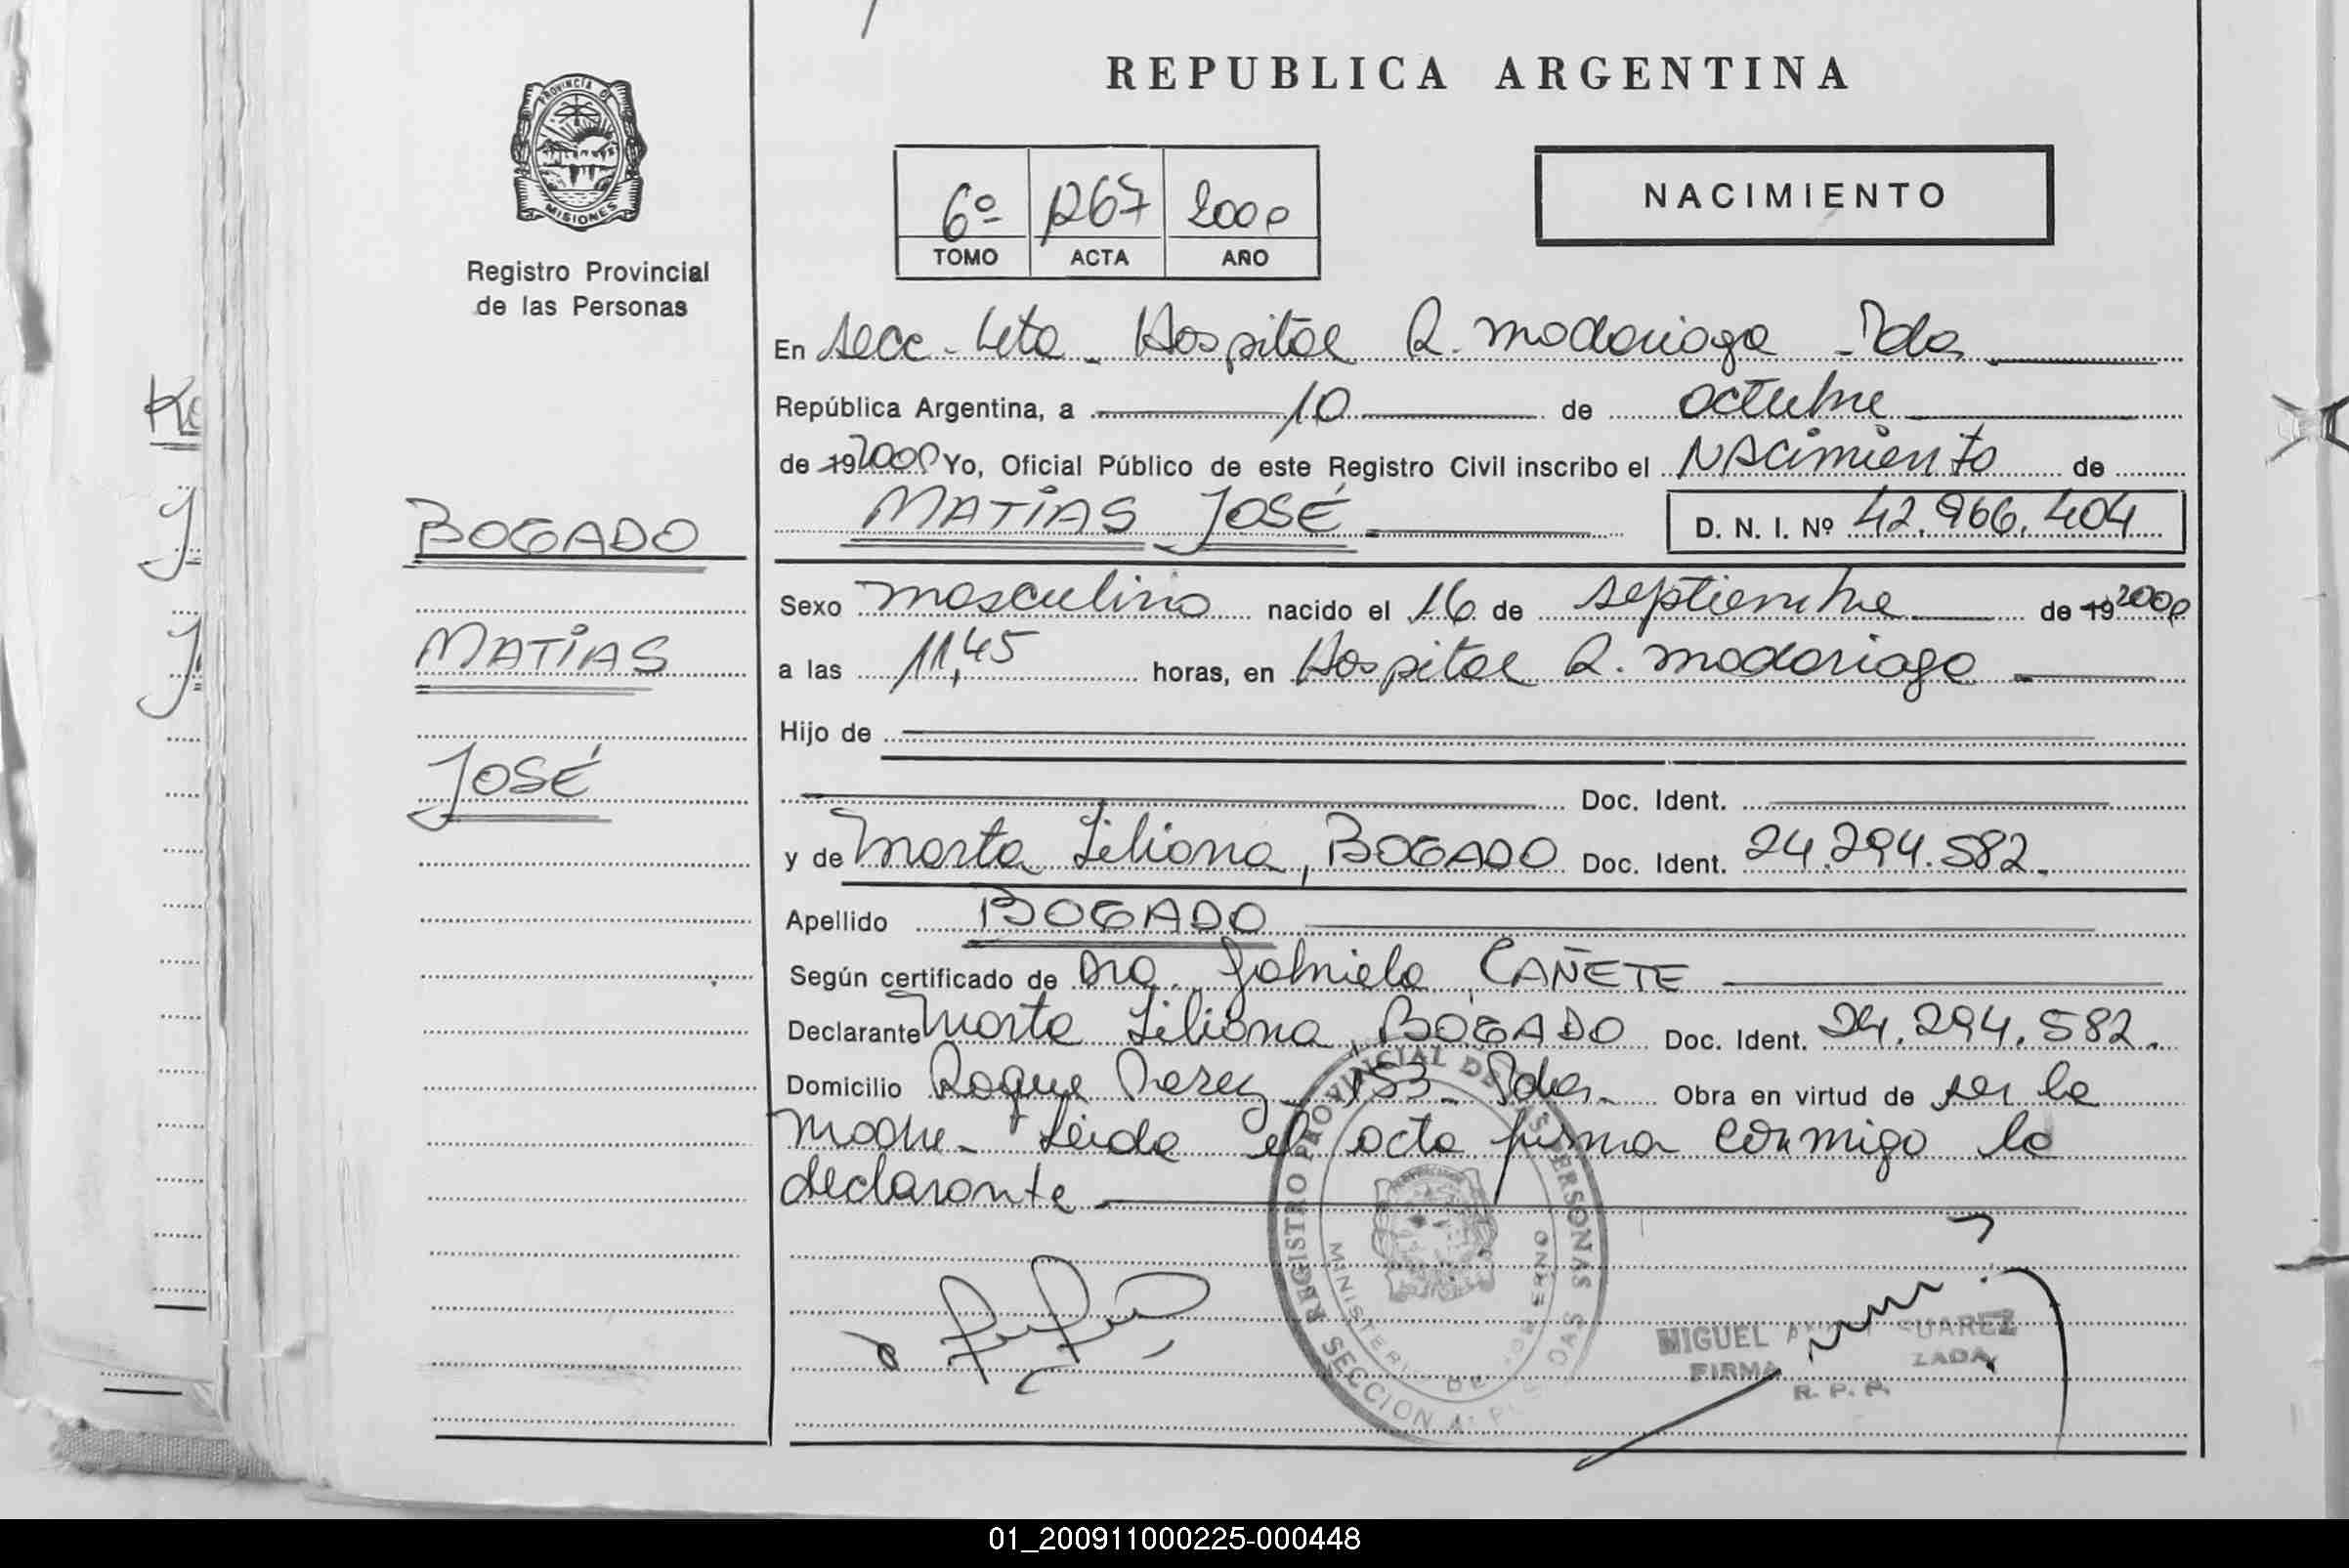 REPUBLICA ARGENTINA
PROVINCIA DE
MISIONES
Registro Provincial
de las Personas
6º 1267 2000
TOMO ACTA AÑO
NACIMIENTO
En Secc. 4ta - Hospital R. Madariaga - Pdas
República Argentina, a 10 de octubre
de 19 2000 Yo, Oficial Público de este Registro Civil inscribo el NACimiento de
MATíAS JOSÉ D. N. I. Nº 42.966.404
BOGADO
MATíAS
JOSÉ
Sexo masculino nacido el 16 de septiembre de 19 2000
a las 11,45 horas, en Hospital R. Madariaga
Hijo de
Doc. Ident.
y de Marta Liliana, BOGADO Doc. Ident. 24.294.582.
Apellido BOGADO
Según certificado de Dra. Gabriela CAÑETE
Declarante Marta Liliana, BOGADO Doc. Ident. 24.294.582.
Domicilio Roque Perez 153 - Pdas. Obra en virtud de ser la
madre - Leida el acta firma conmigo la
declarante
REGISTRO PROVINCIAL DE LAS PERSONAS
MINISTERIO DE GOBIERNO
SECCION
MIGUEL SUAREZ
FIRMA ZADA
R. P. P.
01_200911000225-000448